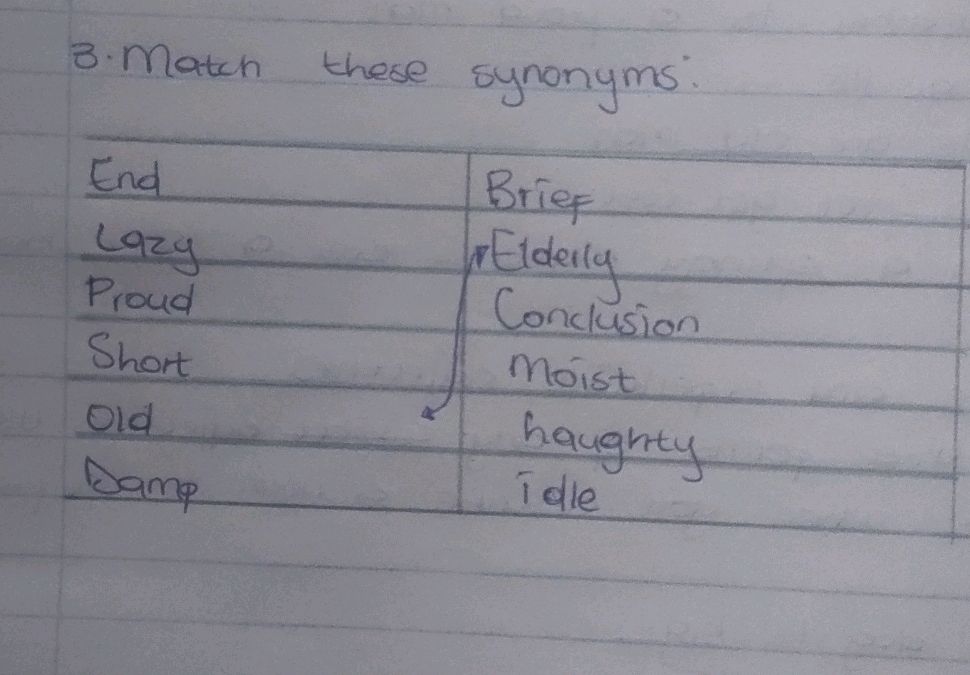 3. Match these synonyms:
End Brief
Lazy Elderly
Proud Conclusion
Short Moist
Old haughty
Damp idle